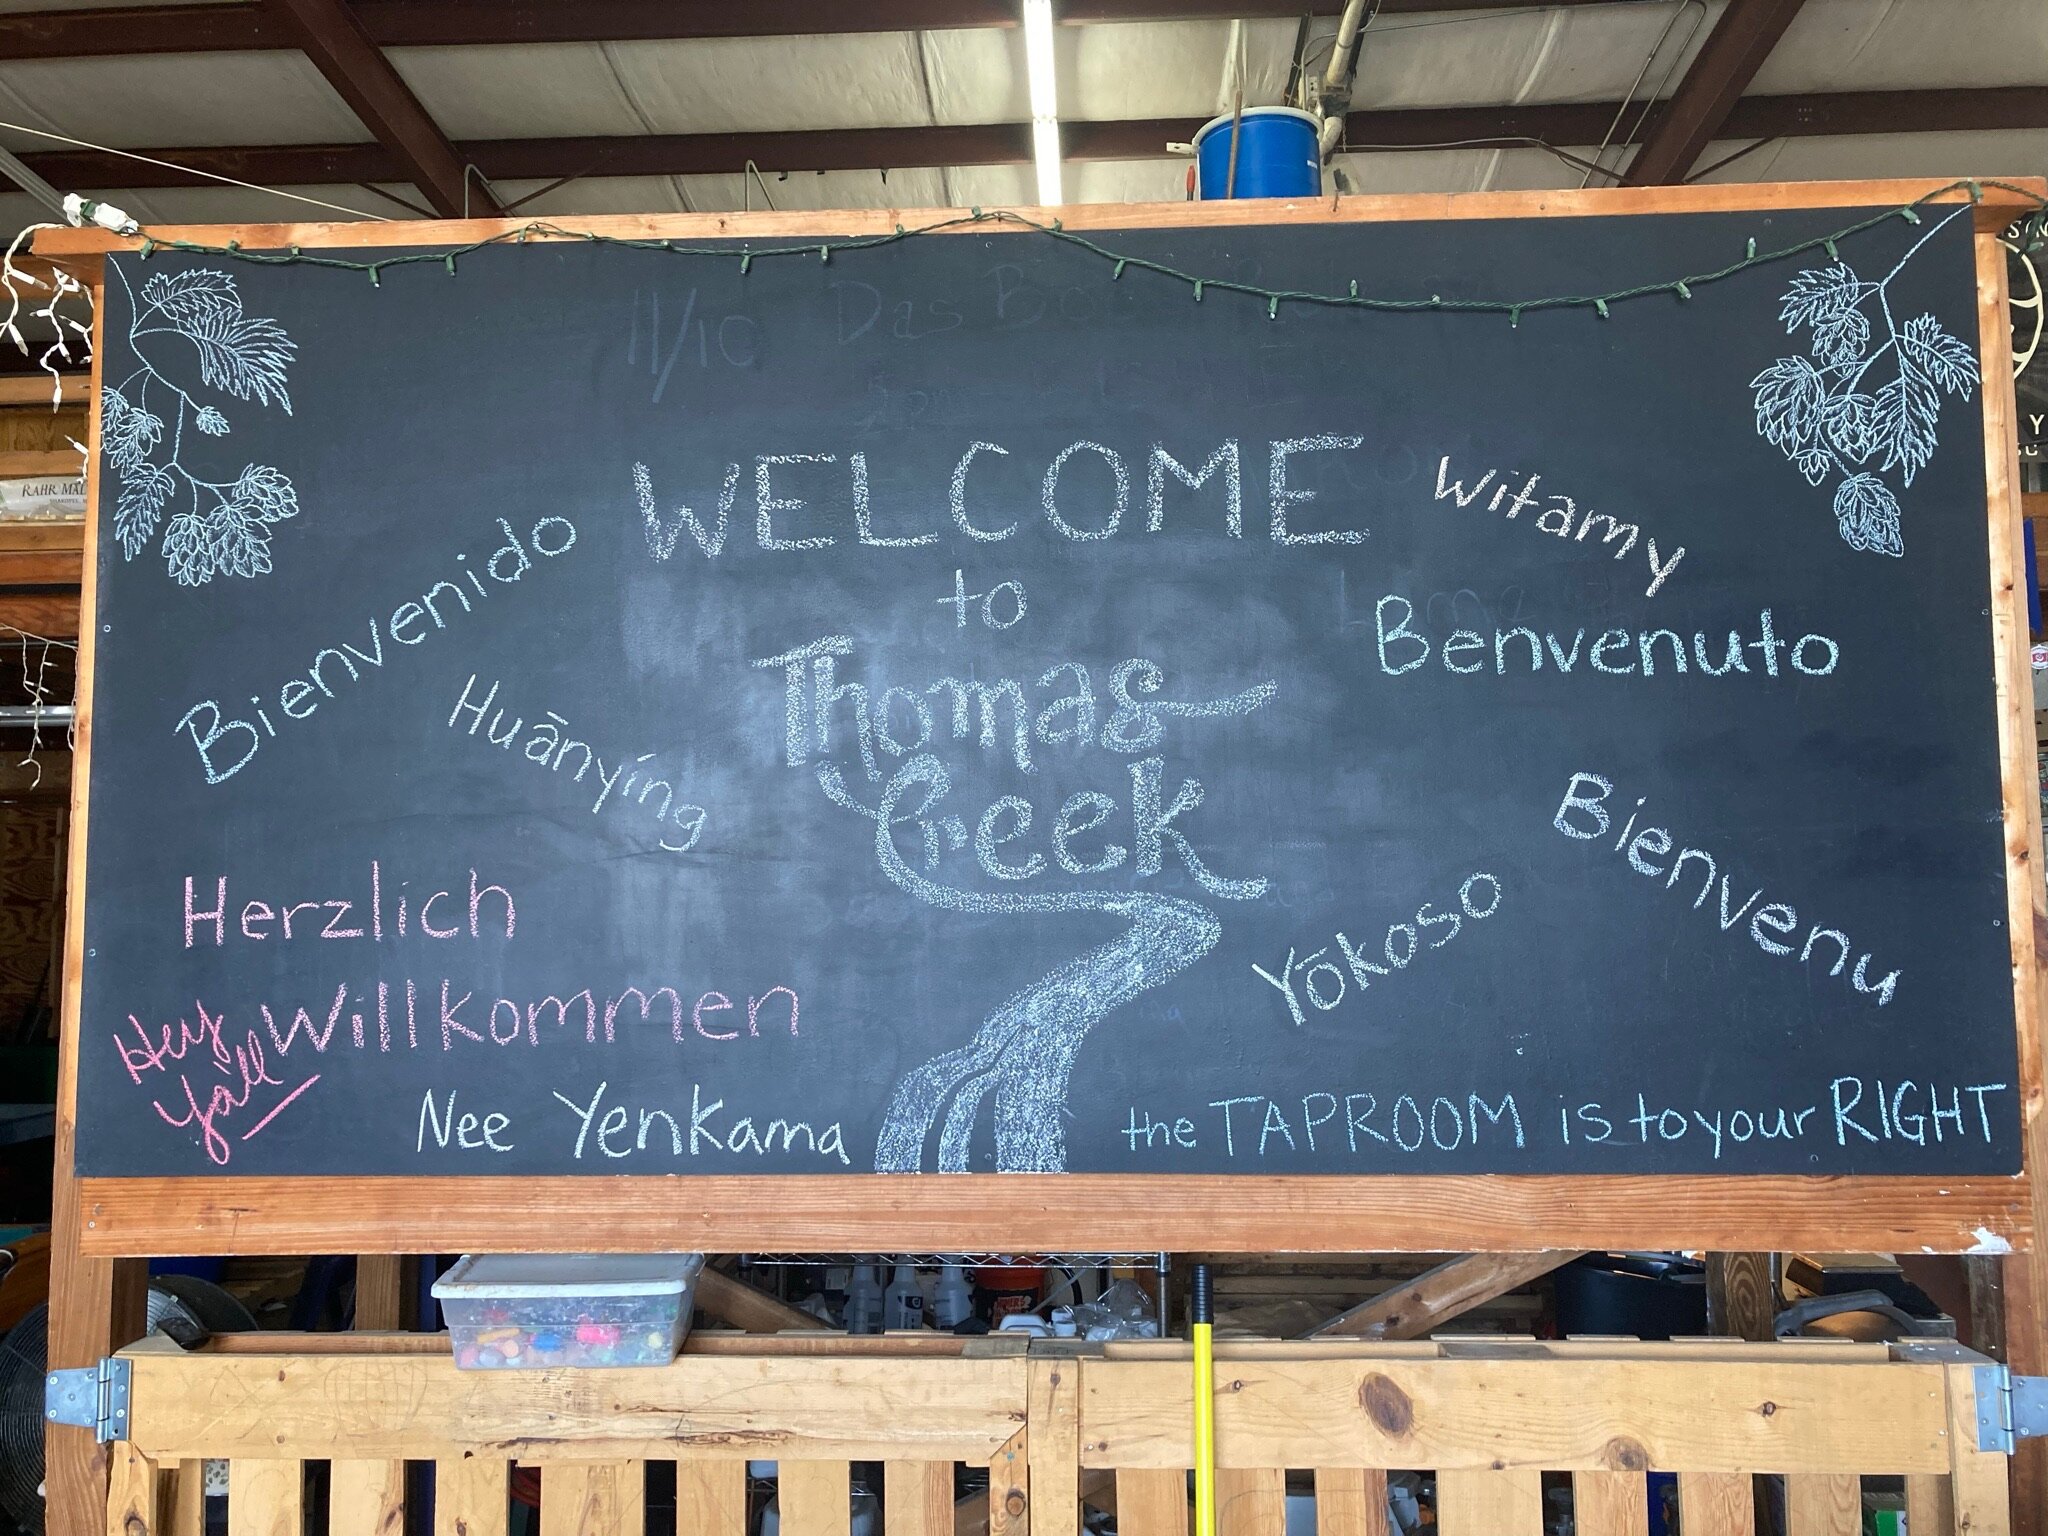 11/10 Das
WELCOME
to
Thomas
Creek
Bienvenido
Huānyíng
Herzlich
Willkommen
Hey
Y'all
Nee Yenkama
Witamy
Benvenuto
Bienvenu
Yōkoso
the TAPROOM is to your RIGHT
RAHR